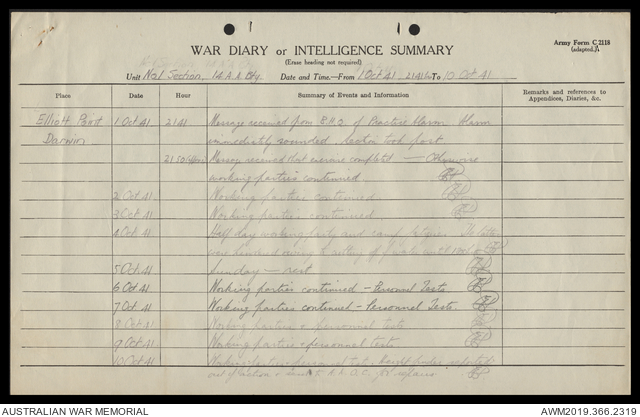 1
WAR DIARY or INTELLIGENCE SUMMARY
Army Form C 2118
(adapted.)
(Erase heading not required)
Unit No1 Section, 14 A.A. Bty. Date and Time.—From 1 Oct 41 2141 To 10 Oct 41
Place Date Hour Summary of Events and Information Remarks and references to
Appendices, Diaries, &c.
Elliott Point 1 Oct 41 2141 Message received from B.H.Q of Practice Alarm. Alarm
Darwin immediately sounded. Section took post.
2150 Message received that exercise completed — Otherwise
working parties continued
2 Oct 41 Working parties continued
3 Oct 41 Working parties continued
4 Oct 41 Half day working party and camp The latter
was hindered owing to of until
5 Oct 41 Sunday — rest
6 Oct 41 Working parties continued – Personnel Tests.
7 Oct 41 Working parties continued – Personnel Tests.
8 Oct 41 Working parties & personnel tests.
9 Oct 41 Working parties & personnel tests
10 Oct 41 Working parties & personnel tests. Height finder reported
out of action & sent to A.A.O.C. for repairs
AUSTRALIAN WAR MEMORIAL
AWM2019.366.2319